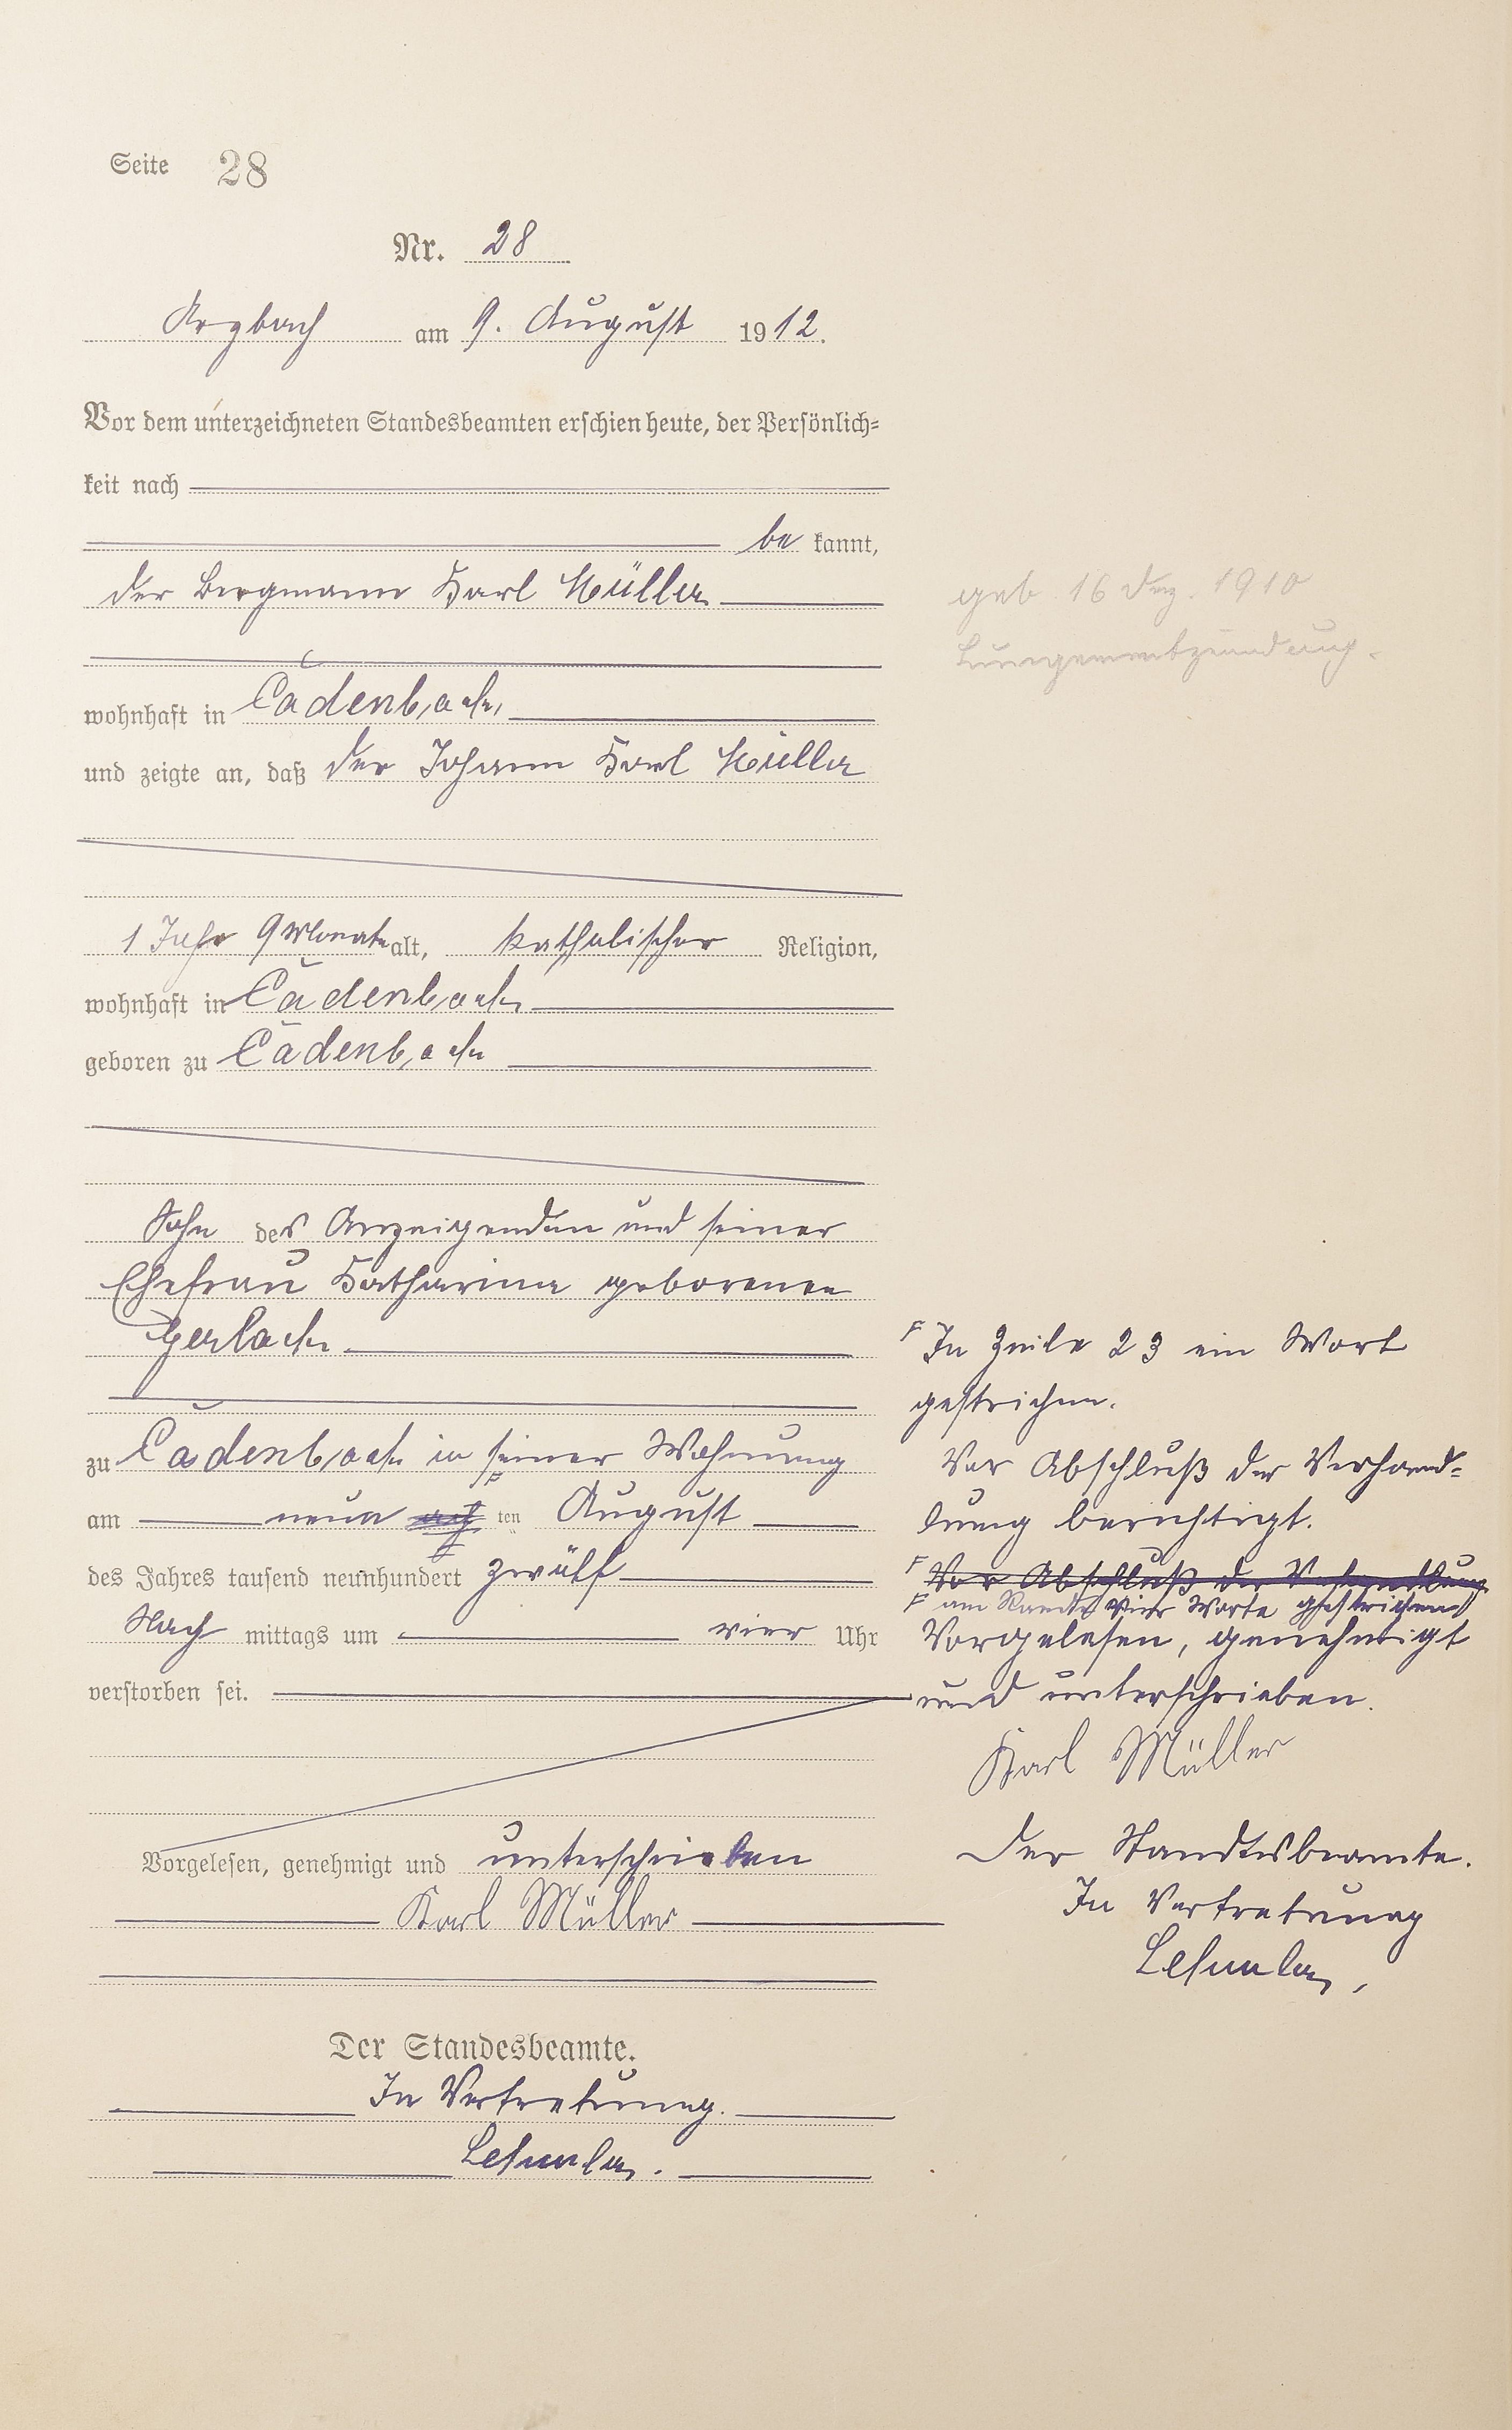 Seite 28
Nr. 28
Arzbach am 9. August 1912.
Vor dem unterzeichneten Standesbeamten erschien heute, der Persönlich-
keit nach
be kannt,
der Bergmann Karl Müller
wohnhaft in Cadenbach,
und zeigte an, daß der Johann Karl Müller
1 Jahr 9 Monate alt, katholischer Religion,
wohnhaft in Cadenbach
geboren zu Cadenbach
Sohn des Anzeigenden und seiner
Ehefrau Katharina geborenen
Gerlach
zu Cadenbach in seiner Wohnung
am neun ten August
des Jahres tausend neunhundert zwölf
Nach mittags um vier Uhr
verstorben sei.
Vorgelesen, genehmigt und unterschrieben
Karl Müller
Der Standesbeamte.
In Vertretung.
geb. 16 Dez. 1910
Lungenentzündung.
In Zeile 23 ein Wort
gestrichen.
Vor Abschluß der Verhand-
lung berichtigt.
Vor Abschluß der Verhandlung
am Rande vier Worte gestrichen
Vorgelesen, genehmigt
und unterschrieben.
Karl Müller
Der Standesbeamte.
In Vertretung